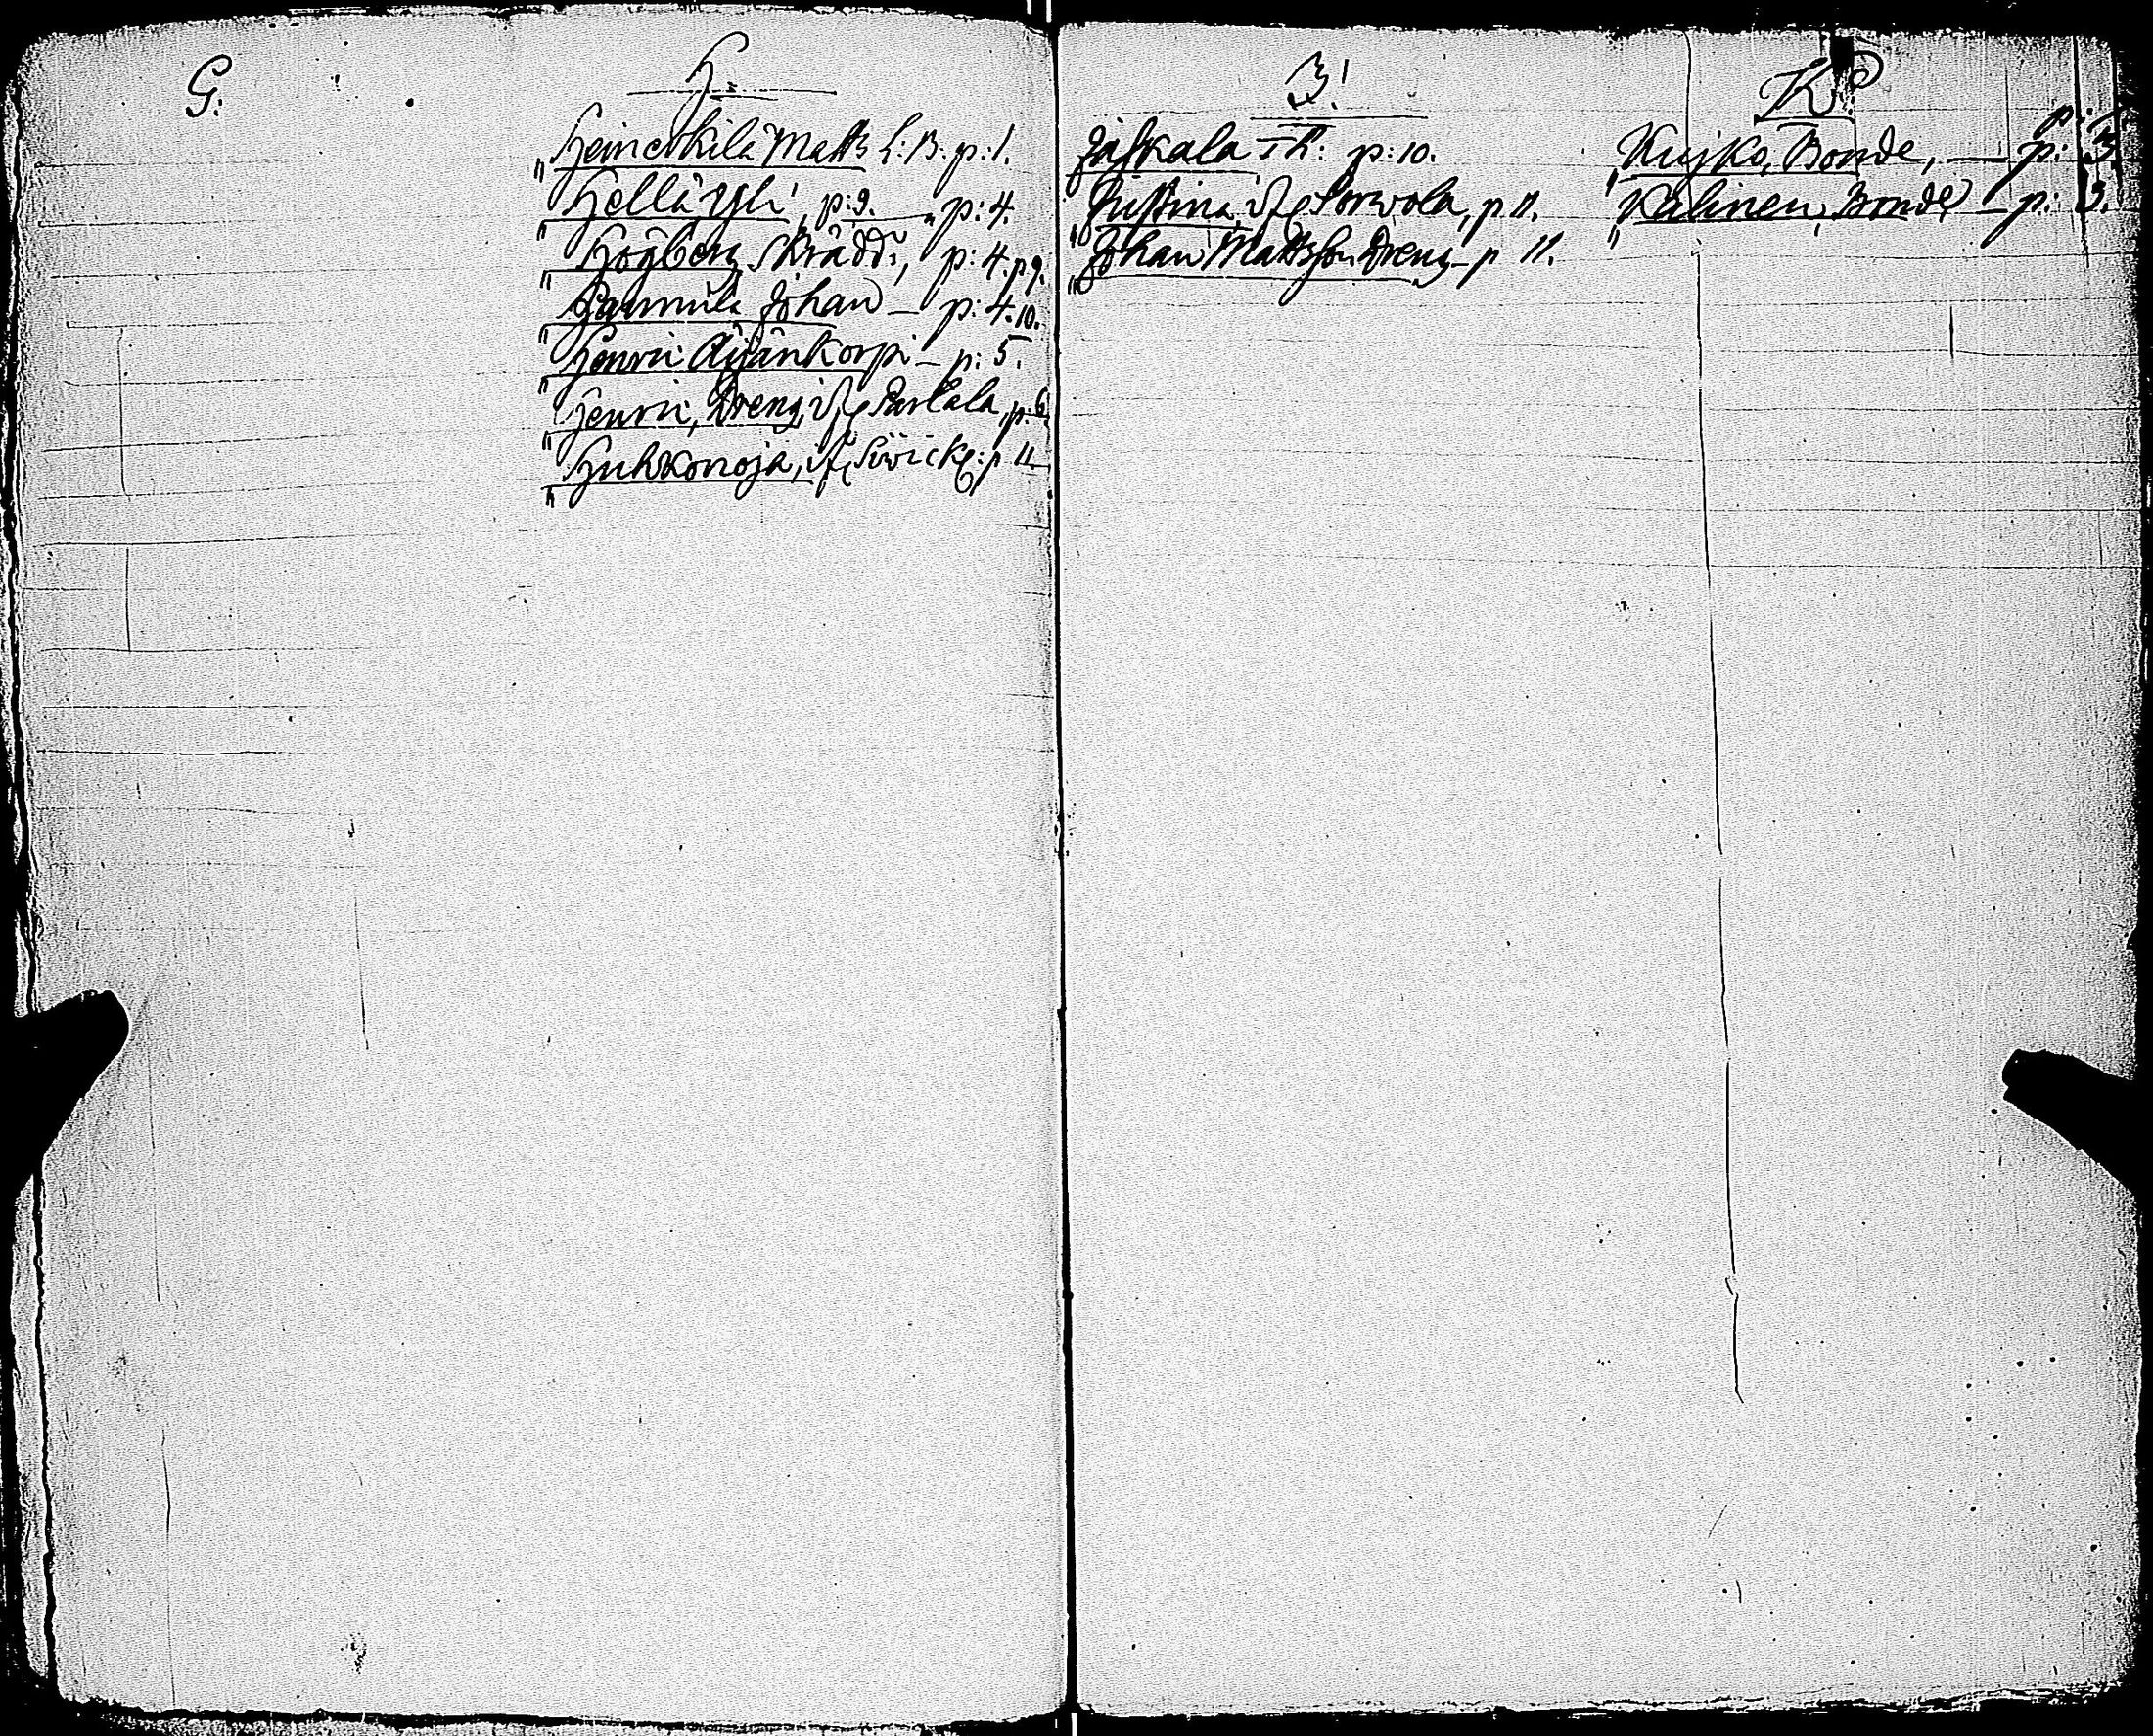 G.
H.
" Heinerkilä Matts L: B. p: 1.
" Hellä Yli, p: 9. p: 4.
" Högberg Skrädd:, p: 4. p 9.
" Hannula Johan — p: 4. 10.
" Henric Äijänkorpi — p: 5.
" Henric, Dreng, p: 6
" Huhkonoja, p 11
J.
Jaskala p: 10.
" Justina, Porvola, p 11.
" Johan Mattsson Dreng — p 11.
K.
p.
" Kujko, Bonde, — p: 3
" Kalinen, Bonde — p: 3.